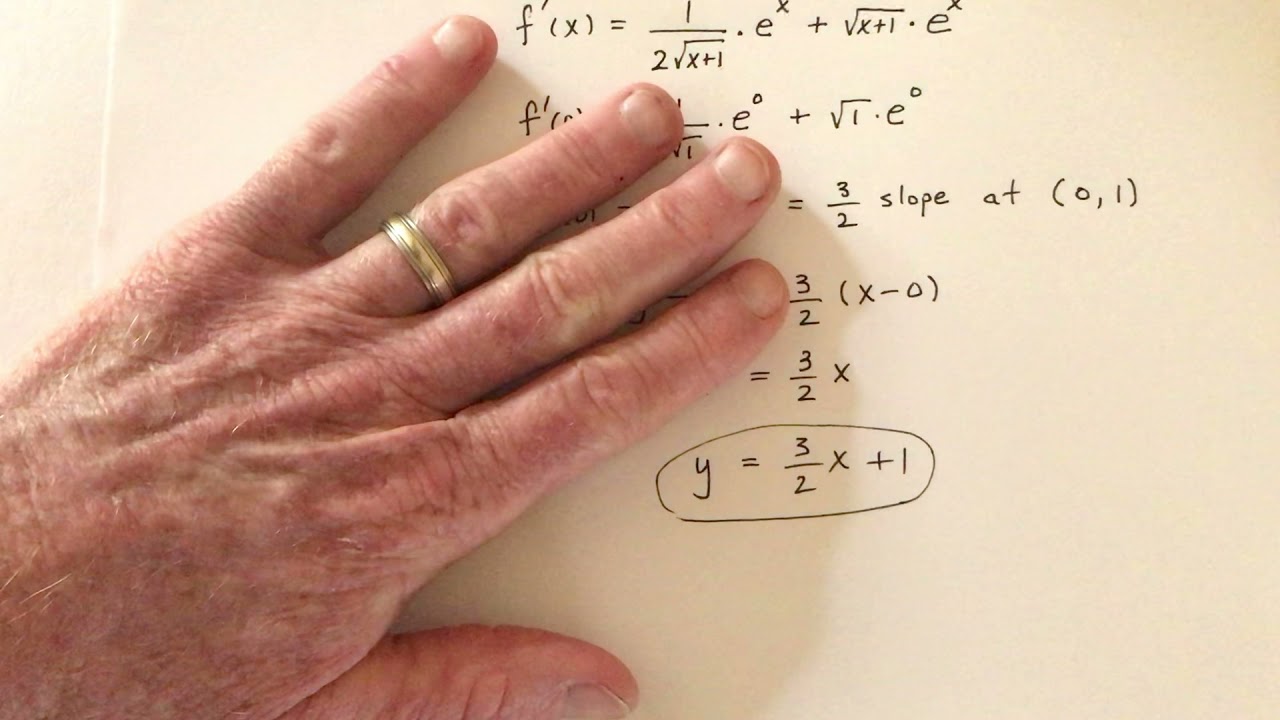 f'(x) = 1/(2√(x+1)) · e^x + √(x+1) · e^x
f'( √1 · e^0 + √1 · e^0
= 3/2 slope at (0,1)
3/2 (x-0)
= 3/2 x
y = 3/2 x + 1